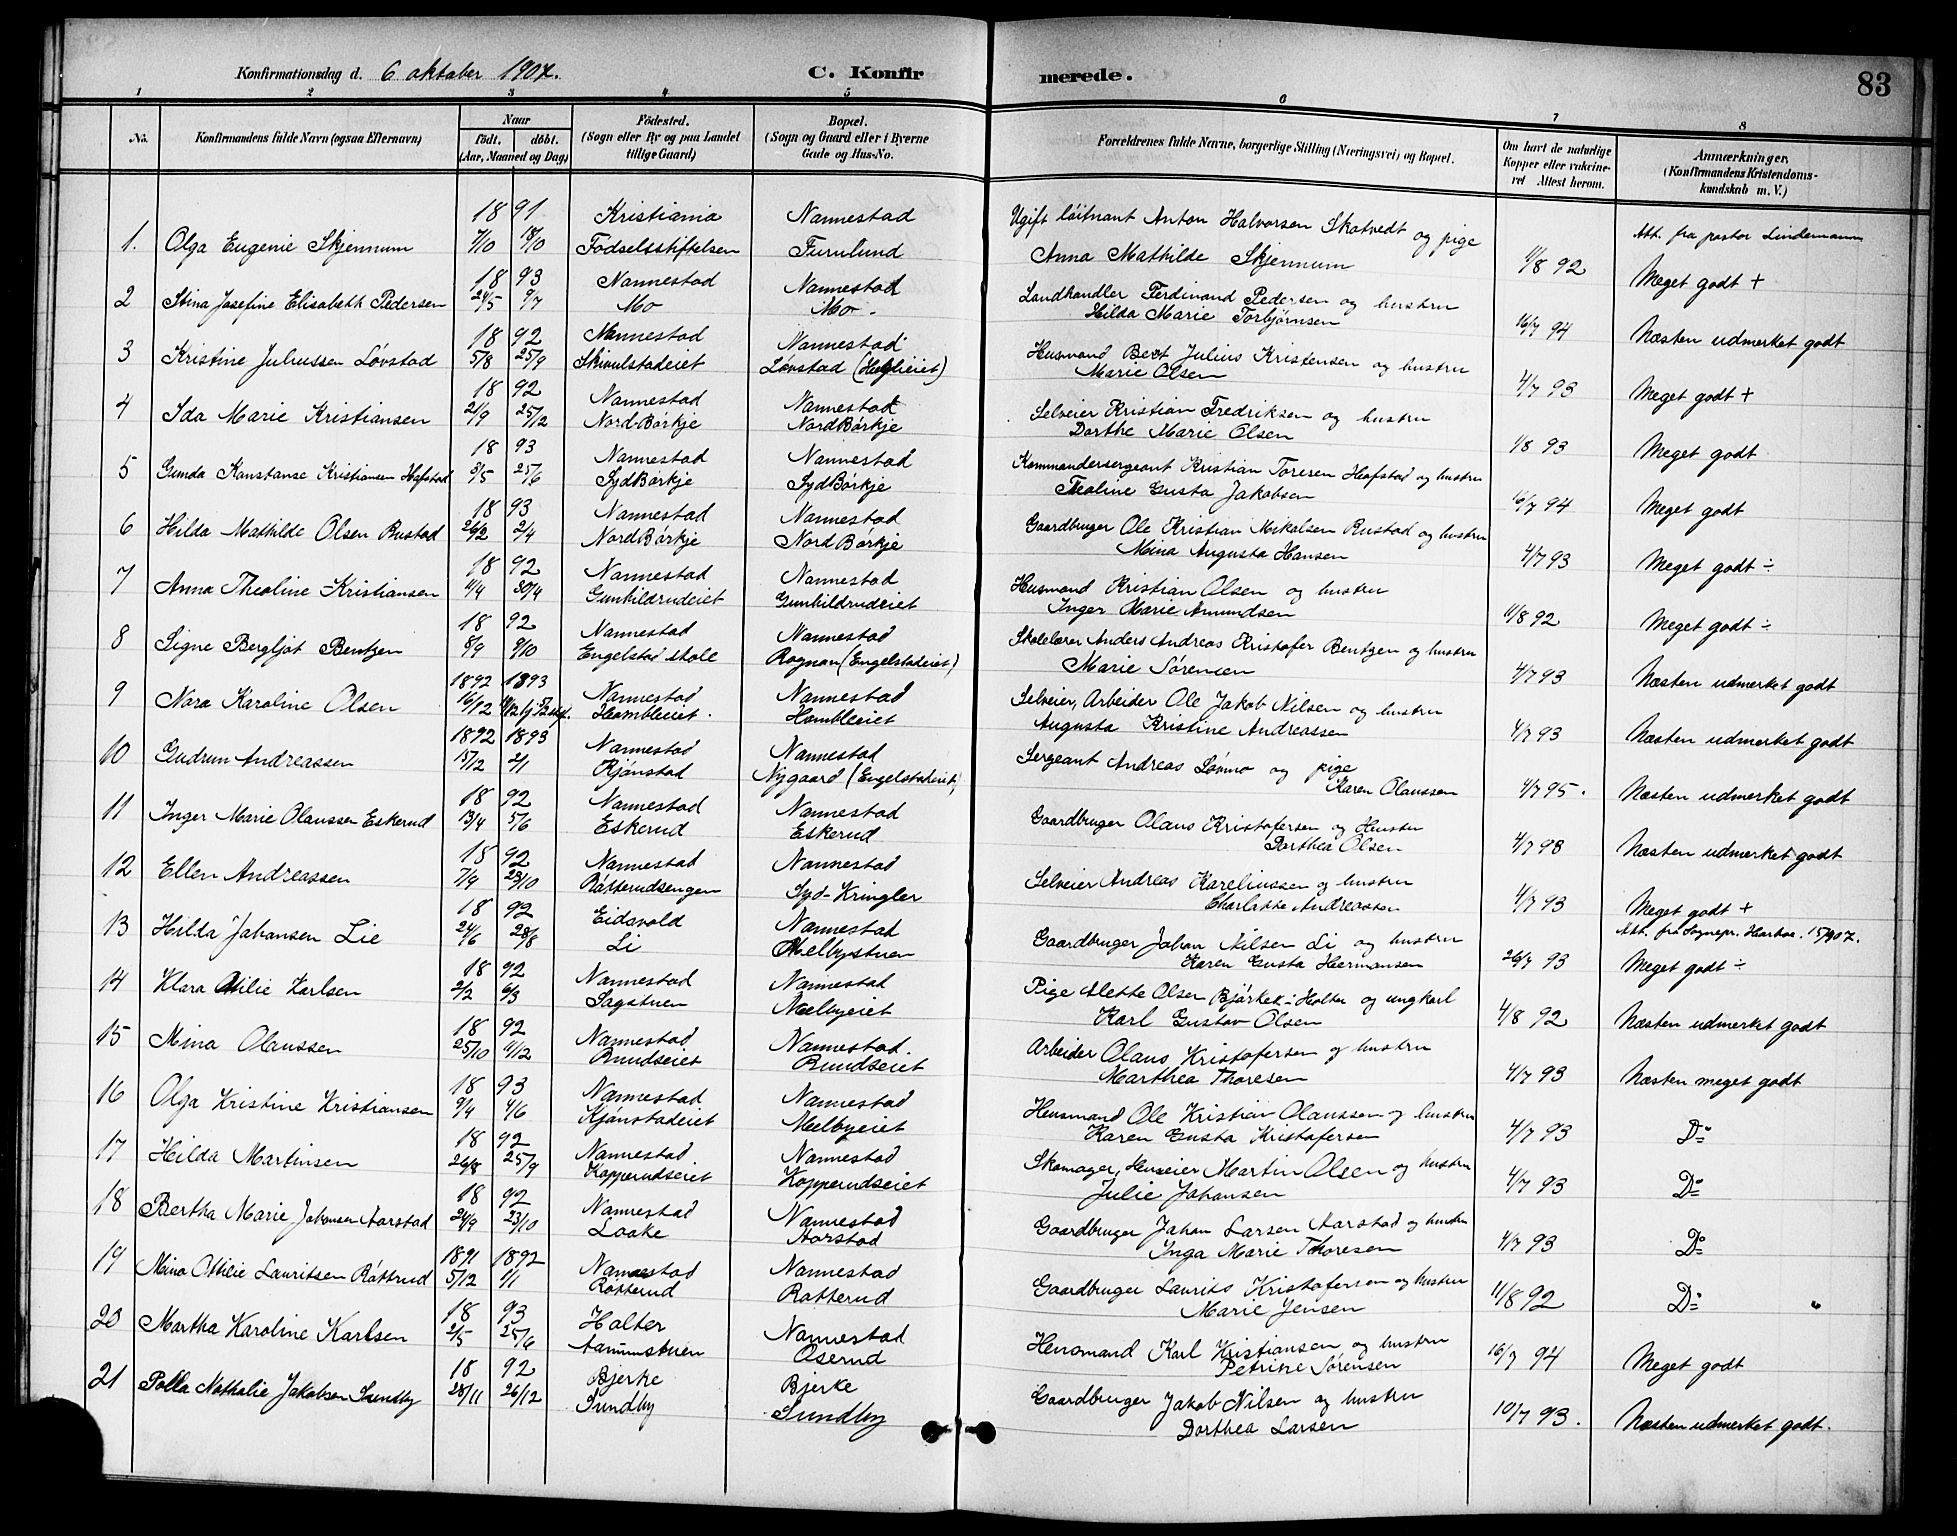 Konfirmationsdag d. 6 oktober 1907. C. Konfirmerede. 83
1 2 3 4 5 6 7 8
No. Konfirmandens fulde Navn (ogsaa Efternavn) Naar født. døbt. (Aar, Maaned og Dag) Fødested. (Sogn eller By og paa Landet tillige Gaard) Bopæl. (Sogn og Gaard eller i Byerne Gade og Hus-No. Forældrenes fulde Navne, borgerlige Stilling (Næringsvei) og Bopæl. Om havt de naturlige Kopper eller vakcineret Attest herom. Anmærkninger. (Konfirmandens Kristendomskundskab m. V.)
18 91 Kristiania Nannestad Ugift løitnant Anton Halvorsen Skotvedt og pige Att. fra pastor Lindemann
1. Olga Eugenie Skjennum 7/10 18/10 Fødselsstiftelsen Furulund Anna Mathilde Skjennum 4/8 92 Meget godt +
18 93 Nannestad Nannestad Landhandler Ferdinand Pedersen og hustru
2 Stina Josefine Elisabeth Pedersen 24/5 9/7 Mo Mo. Hilda Marie Torbjørnsen 16/7 94 Næsten udmerket godt
18 92 Nannestad Nannestad Husmand Bert Julius Kristensen og hustru
3 Kristine Juliussen Løvstad 5/8 25/9 Løvstad Marie Olsen 4/7 93 Meget godt +
18 92 Nannestad Nannestad Selveier Kristian Fredriksen og hustru
4 Ida Marie Kristiansen 2/9 25/12 Nord-Børkje Nord Børkje Dorthe Marie Olsen 1/8 93 Meget godt
18 93 Nannestad Nannestad Kommandersergeant Kristian Toresen Hafstad og hustru
5 Gunda Konstanse Kristiansen Hafstad 3/5 25/6 Syd Børkje Syd Børkje Tholine Gusta Jakobsen 16/7 94 Meget godt
18 93 Nannestad Nannestad Gaardbruger Ole Kristian Mikalsen Rustad og hustru
6 Hilda Mathilde Olsen Rustad 26/2 2/4 Nord Børkje Nord Børkje Mina Augusta Hansen 4/7 93 Meget godt ÷
18 92 Nannestad Nannestad Husmand Kristian Olsen og hustru
7 Anna Theoline Kristiansen 11/4 30/4 Gunhildrudeiet Gunhildrudeiet Inger Marie Amundsen 11/8 92 Meget godt ÷
18 92 Nannestad Nannestad Skolelærer Anders Andreas Kristofer Bentzen og hustru
8 Signe Bergljot Bentzen 8/9 9/10 Engelstad skole Rognan (Engelstadeiet) Marie Sørensen 4/7 93 Næsten udmerket godt
1892 1893 Nannestad Nannestad Selveier, Arbeider Ole Jakob Nilsen og hustru
9 Nora Karoline Olsen 16/12 Hambleeiet. Hambleeiet Augusta Kristine Andreassen 4/7 93 Næsten udmerket godt
1892 1893 Nannestad Nannestad Sergeant Andreas Sømo og pige
10 Gudrun Andreassen 15/12 2/1 Kjønstad Nygaard (Engelstadeiet) Karen Olaussen 4/7 95. Næsten udmerket godt
18 92 Nannestad Nannestad Gaardbruger Olaus Kristofersen og Hustru
11 Inger Marie Olaussen Eskerud 13/4 5/6 Eskerud Eskerud Dorthea Olsen 4/7 93 Næsten udmerket godt
18 92 Nannestad Nannestad Selveier Andreas Kareliussen og hustru
12 Ellen Andreassen 7/9 23/10 Røtterudsengen Syd-Kringler Charlotte Andreassen 4/7 93 Meget godt +
18 92 Eidsvold Nannestad Gaardbruger Johan Nilsen Li og hustru Att. fra Sognepr. Harboe. 15/9 07.
13 Hilda Johansen Lie 24/6 28/8 Li Melbystuen Karen Gusta Hermansen 26/7 93 Meget godt ÷
18 92 Nannestad Nannestad Pige Alette Olsen Bjørkek. i Holter og ungkarl
14 Klara Otilie Karlsen 2/2 6/3 Sagstuen Melbyeiet Karl Gustav Olsen 4/8 92 Næsten udmerket godt
18 92 Nannestad Nannestad. Arbeider Olaus Kristofersen og hustru
15 Mina Olaussen 25/10 11/12 Rundseiet Bundseiet Marthea Thoresen 4/7 93 Næsten meget godt
18 93 Nannestad Nannestad Husmand Ole Kristian Olaussen og hustru
16 Olga Kristine Kristiansen 9/4 4/6 Kjønstadeiet Melbyeiet Karen Gusta Kristofersen 4/7 93 Do
18 92 Nannestad Nannestad Skomager, Huseier Martin Olsen og hustru
17 Hilda Martinsen 26/8 25/9 Kopperudseiet Kopperudseiet Julie Johansen 4/7 93 Do
18 92 Nannestad Nannestad Gaardbruger Johan Larsen Aarstad og hustru
18 Bertha Marie Johansen Aarstad 24/9 23/10 Laake Aarstad Inga Marie Thoresen 4/7 93 Do
1891 1892 Nannestad Nannestad Gaardbruger Laurits Kristofersen og hustru
19 Mina Otilie Lauritsen Røtterud 5/12 1/1 Røtterud Røtterud Marie Jensen 11/8 92 Do
18 93 Holter Nannestad Husmand Karl Kristiansen og hustru
20 Martha Karoline Karlsen 2/5 25/6 Aamunstuen Oserud Petrine Sørensen 16/7 94 Meget godt
18 92 Bjerke Bjerke Gaardbruger Jakob Nilsen og hustru
21 Polla Nathalie Jakobsen Sundby 28/11 26/12 Sundby Sundby Dorthea Larsen 10/7 93. Næsten udmerket godt.